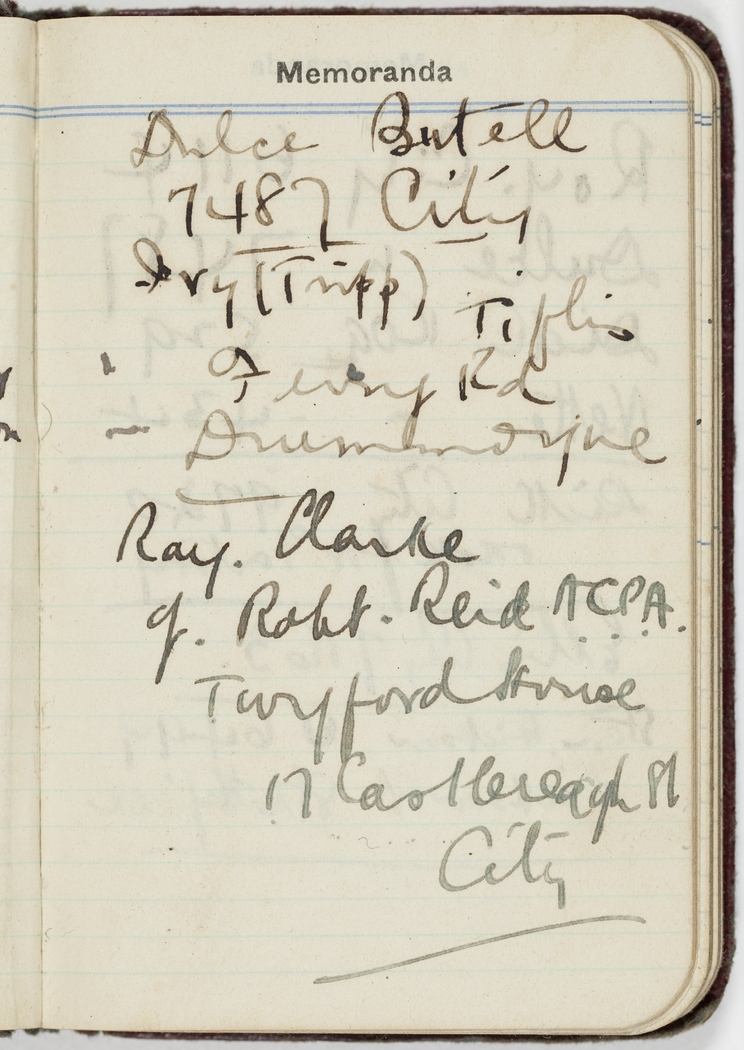 Memoranda
Dulce Butell
7487 City
Ivy (Tripp) Tiflis
Ferry Rd
Drummoyne
Ray. Clarke
c/. Robt. Reid A.C.P.A.
Twyford House
17 Castlereagh St
City